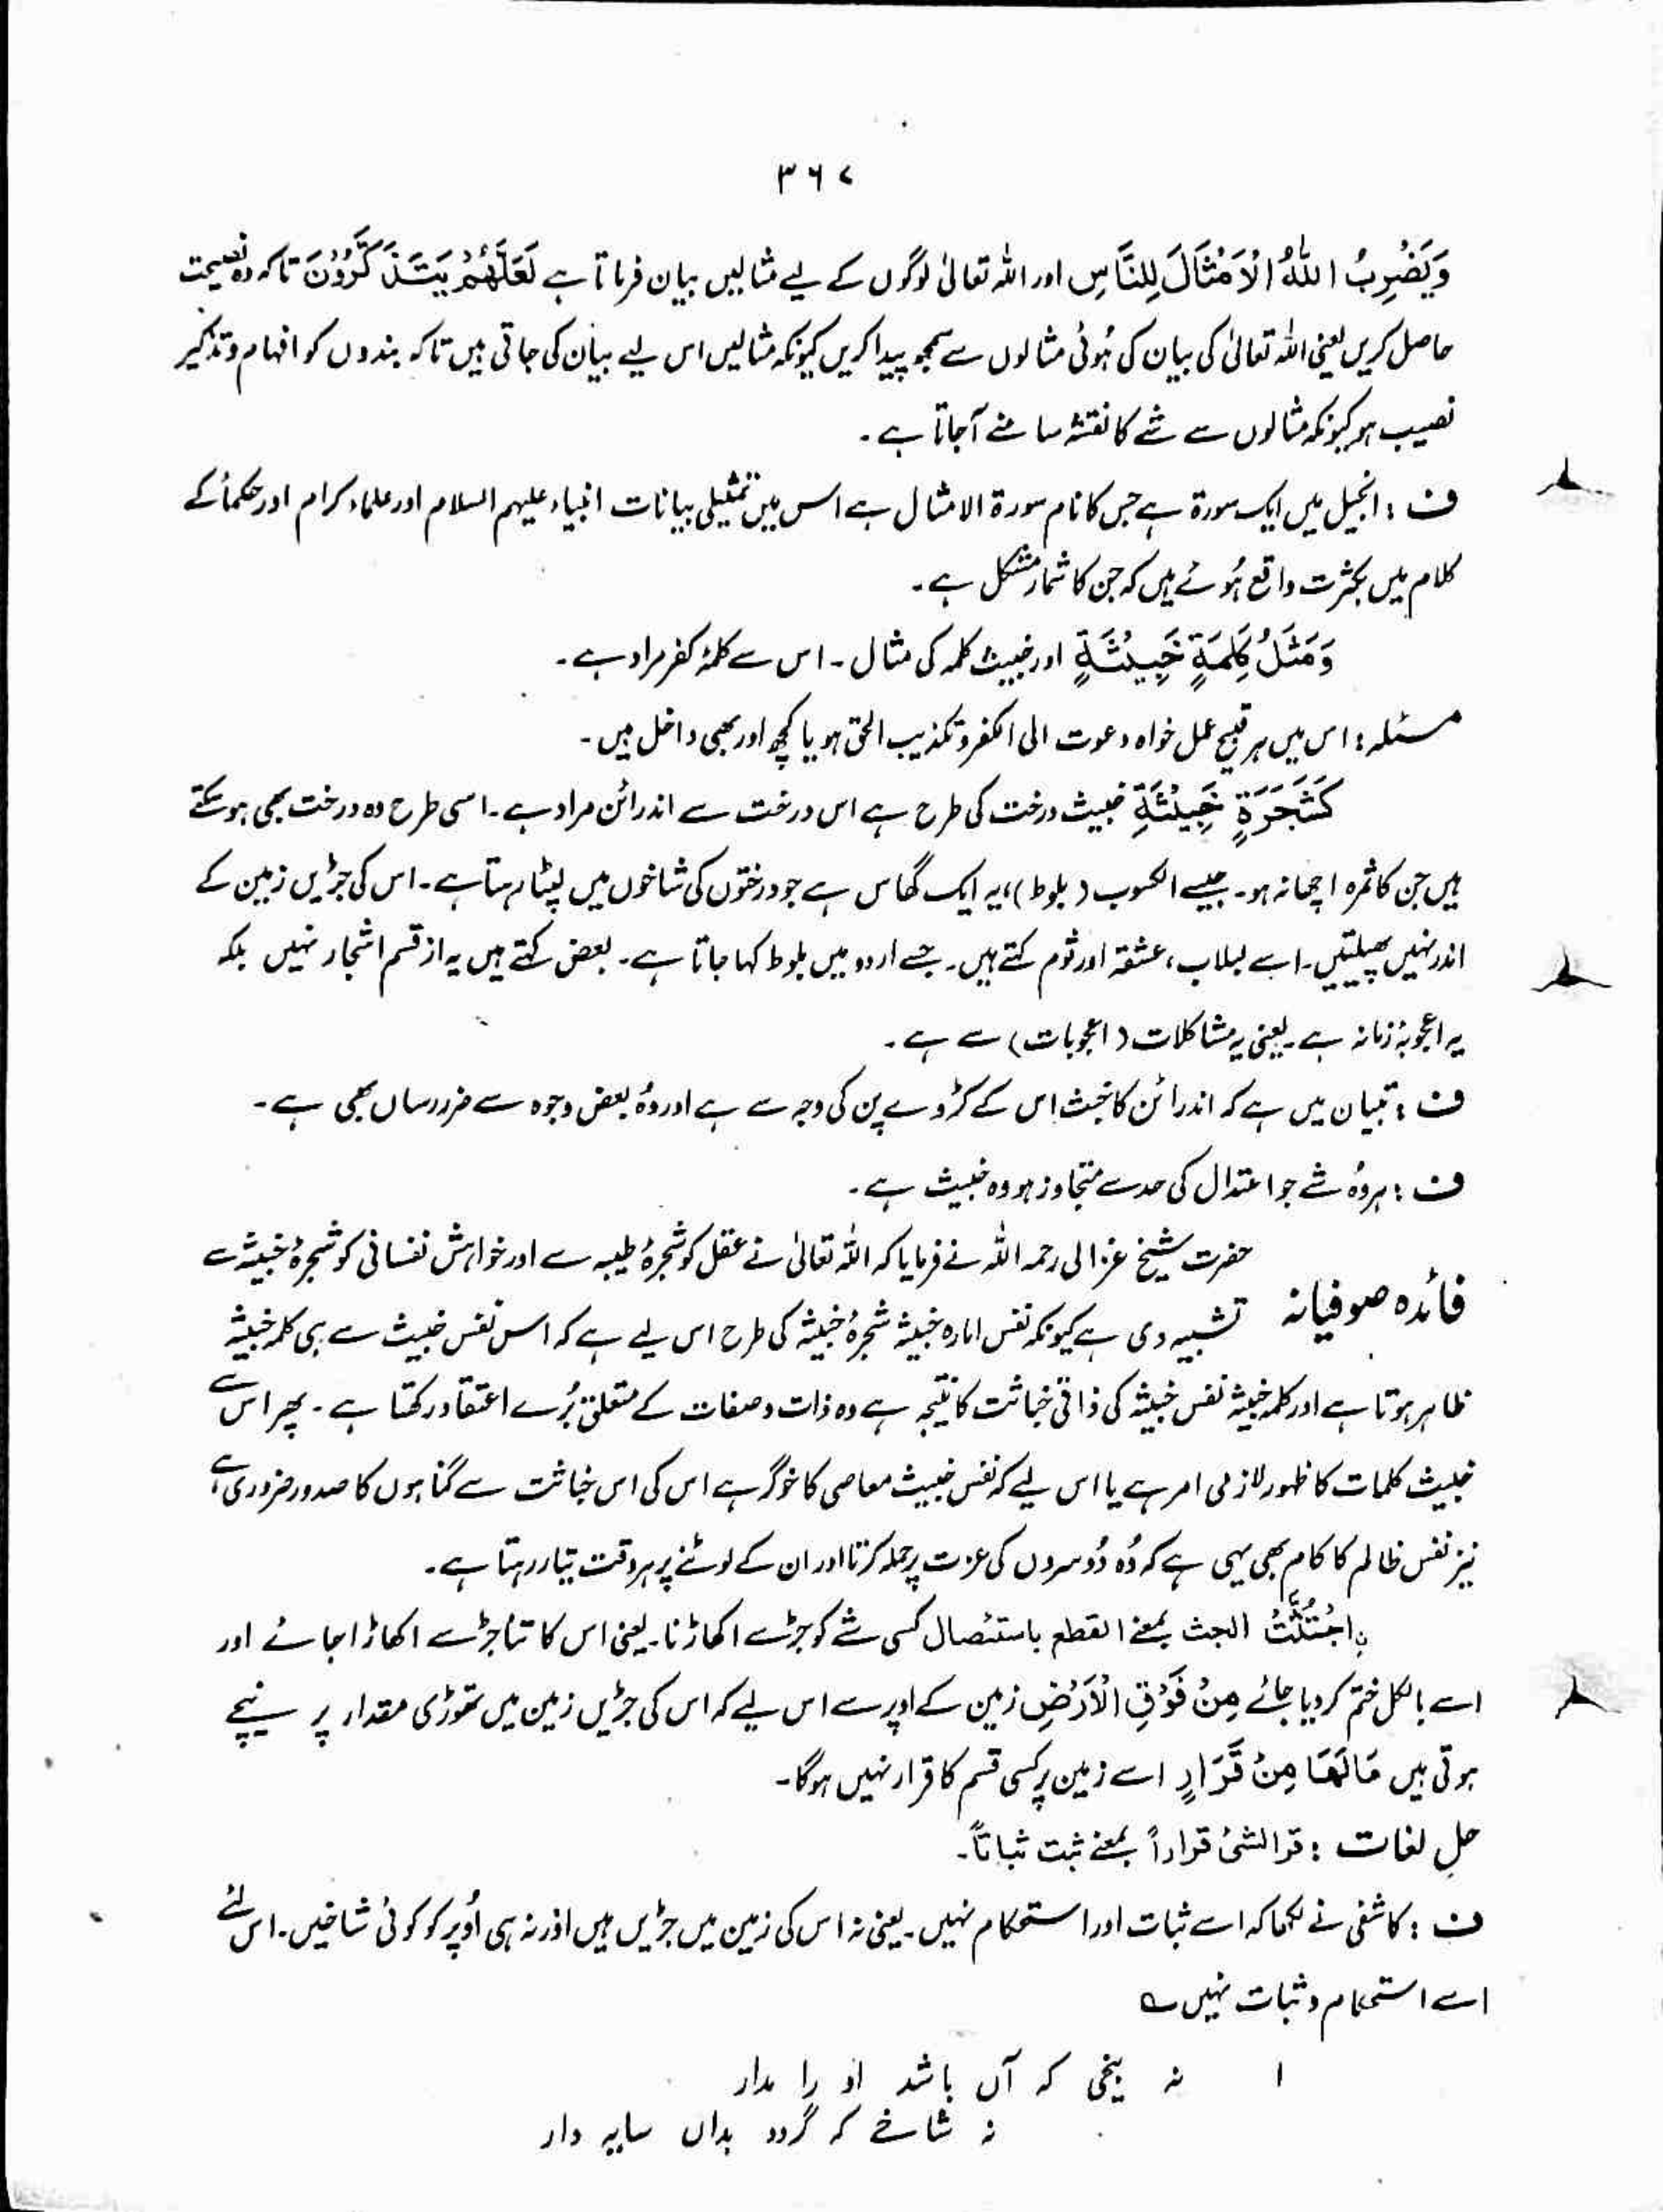 ۳۶۷
وَيَضْرِبُ اللّٰهُ الْاَمْثَالَ لِلنَّاسِ اور اللہ تعالیٰ لوگوں کے لیے مثالیں بیان فرماتا ہے لَعَلَّهُمْ يَتَذَكَّرُوْنَ تاکہ وہ نصیحت
حاصل کریں یعنی اللہ تعالیٰ کی بیان کی ہُوئی مثالوں سے سمجھ پیدا کریں کیونکہ مثالیں اس لیے بیان کی جاتی ہیں تاکہ بندوں کو افہام و تذکیر
نصیب ہو کیونکہ مثالوں سے شے کا نقشہ سامنے آجاتا ہے۔
ف : انجیل میں ایک سورۃ ہے جس کا نام سورۃ الامثال ہے اس میں تمثیلی بیانات انبیاء علیہم السلام اور علماء کرام اور حکمأ کے
کلام میں بکثرت واقع ہُوئے ہیں کہ جن کا شمار مشکل ہے۔
وَمَثَلُ كَلِمَةٍ خَبِيْثَةٍ اور خبیث کلمہ کی مثال ۔ اس سے کلمۂ کفر مراد ہے ۔
مسئلہ : اس میں ہر قبیح عمل خواہ دعوت الی الکفر و تکذیب الحق ہو یا کچھ اور بھی داخل ہیں ۔
كَشَجَرَةٍ خَبِيْثَةِ خبیث درخت کی طرح ہے اس درخت سے اندرائن مراد ہے ۔ اسی طرح وہ درخت بھی ہو سکتے
ہیں جن کا ثمرہ اچھا نہ ہو ۔ جیسے الکسوب (بلوط)، یہ ایک گھاس ہے جو درختوں کی شاخوں میں لپٹا رہتا ہے ۔ اس کی جڑیں زمین کے
اندر نہیں پھیلتیں ۔ اسے لبلاب ، عشقہ اور ثوم کہتے ہیں ۔ جسے اردو میں بلوط کہا جاتا ہے ۔ بعض کہتے ہیں یہ از قسم اشجار نہیں بلکہ
یہ اعجوبۂ زمانہ ہے ۔ یعنی یہ مشاکلات (اعجوبات) سے ہے ۔
ف : تبیان میں ہے کہ اندرائن کا خبث اس کے کڑوے پن کی وجہ سے ہے اور وُہ بعض وجوہ سے ضرر رساں بھی ہے ۔
ف : ہر وُہ شے جو اعتدال کی حد سے متجاوز ہو وہ خبیث ہے ۔
حضرت شیخ غزالی رحمہ اللہ نے فرمایا کہ اللہ تعالیٰ نے عقل کو شجرۂ طیبہ سے اور خواہش نفسانی کو شجرۂ خبیثہ سے
فائدہ صوفیانہ تشبیہ دی ہے کیونکہ نفس امارہ خبیثہ شجرۂ خبیثہ کی طرح اس لیے ہے کہ اس نفس خبیث سے ہی کلمہ خبیثہ
ظاہر ہوتا ہے اور کلمہ خبیثہ نفس خبیثہ کی ذاتی خباثت کا نتیجہ ہے وہ ذات و صفات کے متعلق بُرے اعتقاد رکھتا ہے ۔ پھر اس سے
خبیث کلمات کا ظہور لازمی امر ہے یا اس لیے کہ نفس خبیث معاصی کا خوگر ہے اس کی اس خباثت سے گناہوں کا صدور ضروری ہے ،
نیز نفس ظالم کا کام بھی یہی ہے کہ وُہ دُوسروں کی عزت پر حملہ کرتا اور ان کے لوٹنے پر ہر وقت تیار رہتا ہے ۔
ِاجْتُثَّتْ الجث بمعنے القطع باستئصال کسی شے کو جڑ سے اکھاڑنا ۔ یعنی اس کا تنا جڑ سے اکھاڑا جائے اور
اسے بالکل ختم کر دیا جائے مِنْ فَوْقِ الْاَرْضِ زمین کے اوپر سے اس لیے کہ اس کی جڑیں زمین میں تھوڑی مقدار پر نیچے
ہوتی ہیں مَا لَهَا مِنْ قَرَارٍ اسے زمین پر کسی قسم کا قرار نہیں ہوگا ۔
حلِ لغات : قر الشئ قراراً بمعنے ثبت ثباتاً ۔
ف : کاشفی نے لکھا کہ اسے ثبات اور استحکام نہیں ۔ یعنی نہ اس کی زمین میں جڑیں ہیں اور نہ ہی اُوپر کو کوئی شاخیں ۔ اس لئے
اسے استحکام و ثبات نہیں ؎
۱ نہ بیخی کہ آں باشد او را مدار
نہ شاخے کہ گردد بداں سایہ دار